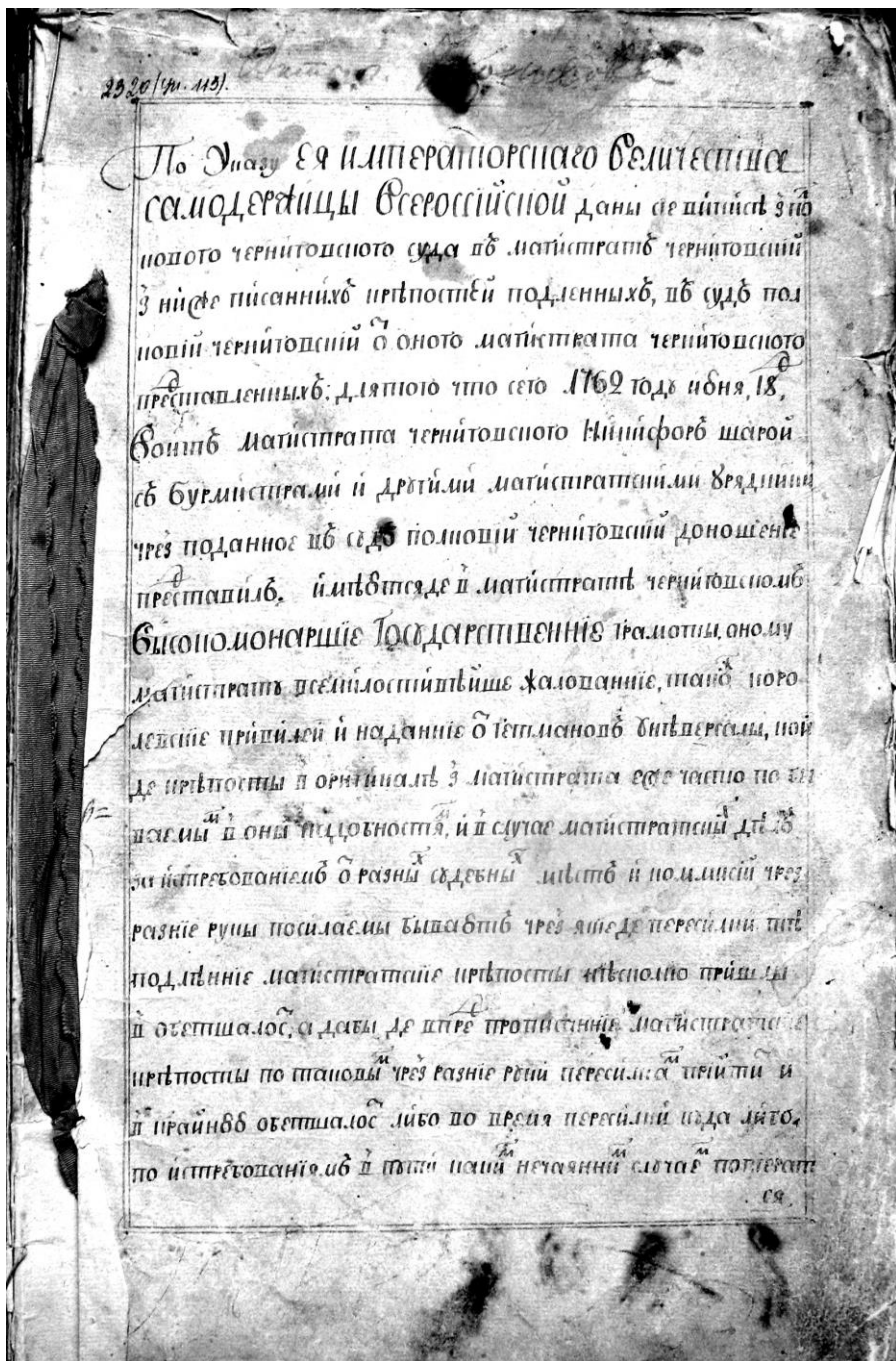 2320 (ун. 113).
По Указу ЕЯ ИМПЕРАТОРСКАГО ВЕЛИЧЕСТВА
САМОДЕРЖИЦЫ ВСЕРОССІЙСКОЙ даны сѐ виписѣ з пол
кового черниговского суда въ магистратъ черниговский
з ниже писаннихъ крѣпостей подленныхъ, въ судъ пол
ковій черниговскій ѿ оного магистрата черниговского
представленныхъ: для того что сего 1762 годꙋ июня, 18д,
Воитъ магистрата черниговского Никифоръ шарой
съ бурмистрами и другими магистратскими ꙋрядники
чрез поданное въ сꙋдъ полковій черниговскій доношение
представилъ, имѣютсяде в магистратѣ черниговскомъ
Високомонаршіе Государственніе грамоты, оному
магистратꙋ всемилостивѣйше жалованніе, також коро
левскіе привилеи и наданніе ѿ гетмановъ ꙋнѣверсалы, кои
де крѣпосты в оригиналѣ з магистрата еже часто по
ваемым в оных надобностях, и в случае магистратских дѣлъ
за истребованиемъ ѿ разных сꙋдебных мѣстъ и коммисій чрез
разніе рꙋкы посилаемы бываютъ чрез якиеде пересилки тіе
подлѣнніе магистратскіе крѣпосты нѣсколко прийшлы
в обетшалост, а дабы де впред прописанніе магистратские
крѣпосты по таковым чрез разніе рꙋки пересилкам прийти и
в крайнюю обетшалост либо во время пересилки кꙋда либо,
по истребованіямъ в пꙋти каким нечаянним случаем потерят
ся